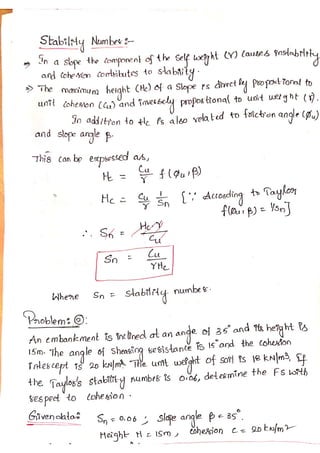 Stability Number :-
→ In a slope the component of the self weight (γ) causes instability
and cohesion contributes to stability.
→ The maximum height (Hc) of a slope is directly proportional to
unit cohesion (Cu) and inversely proportional to unit weight (γ).
In addition to Hc is also related to friction angle (ϕu)
and slope angle β.
This can be expressed as,
Hc = Cu/γ f (ϕu, β)
Hc = Cu/γ 1/Sn [∵ According to Taylor
f(ϕu, β) = 1/Sn]
∴ Sn = Hc γ / Cu
Sn = Cu / γHc
Where Sn = stability number.
Problem: ②:
An embankment is inclined at an angle of 35° and its height is
15m. The angle of shearing resistance is 15° and the cohesion
intercept is 20 kN/m². The unit weight of soil is 18 kN/m³. If
the Taylor's stability number is 0.06, determine the FS with
respect to cohesion.
Given data: Sn = 0.06 ; slope angle β = 35°.
Height H = 15m, cohesion c = 20 kN/m²